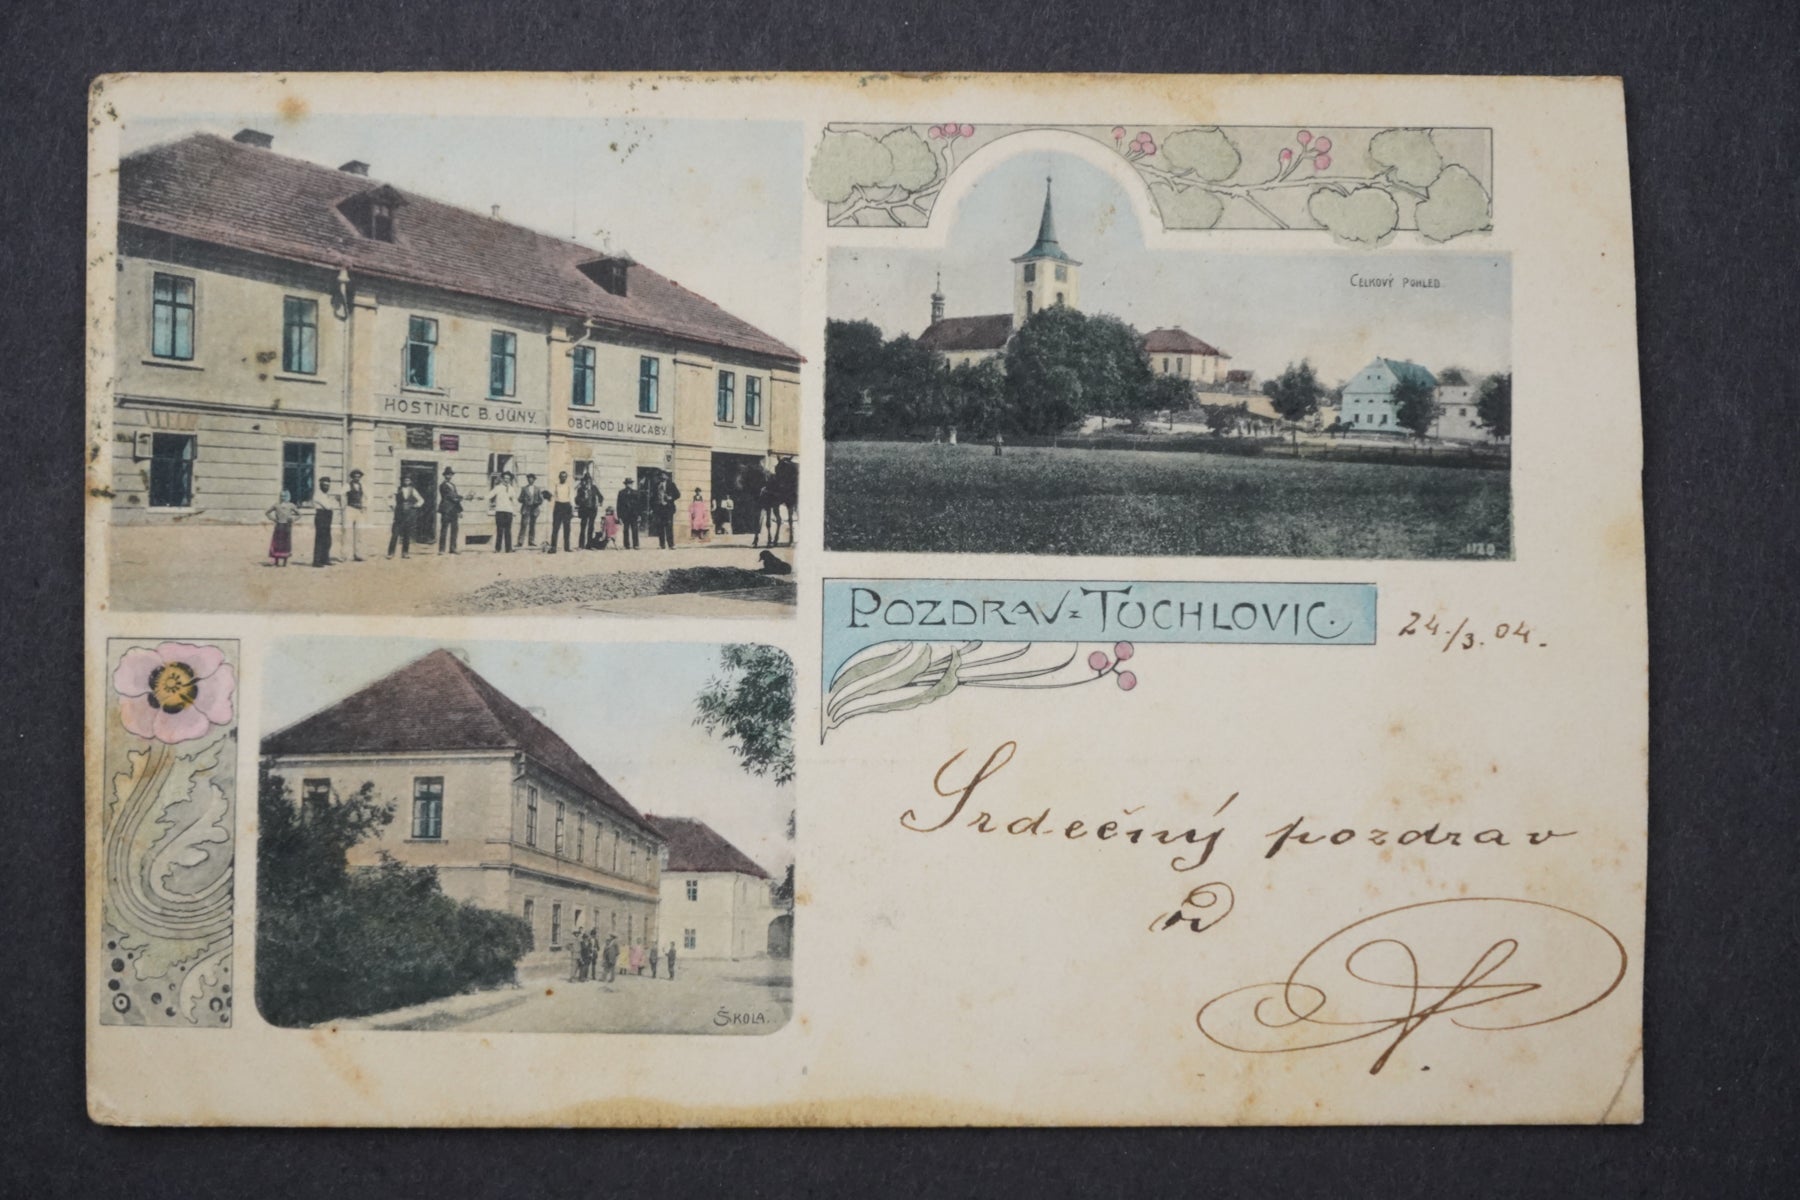 HOSTINEC B. JŮNY.
OBCHOD U KUCABY.
CELKOVÝ POHLED.
1120
POZDRAV z TUCHLOVIC.
24./3. 04.
Srdečný pozdrav
ŠKOLA.